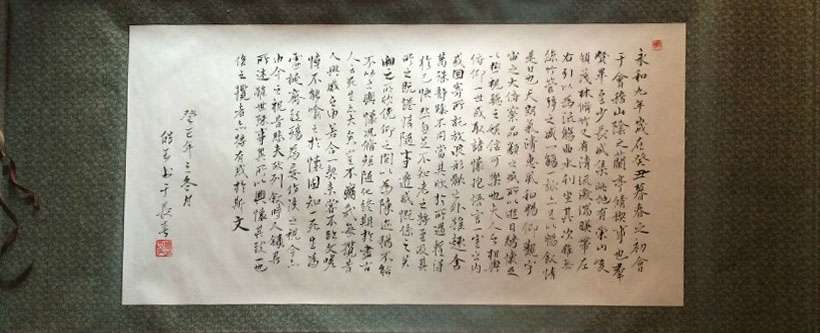 永和九年歲在癸丑暮春之初會
于會稽山陰之蘭亭脩禊事也羣
賢畢至少長咸集此地有崇山峻
領茂林脩竹又有清流激湍暎帶左
右引以為流觴曲水列坐其次雖無
絲竹管弦之盛一觴一詠亦足以暢敘幽情
是日也天朗氣清惠風和暢仰觀宇
宙之大俯察品類之盛所以遊目騁懷足
以極視聽之娛信可樂也夫人之相與
俯仰一世或取諸懷抱悟言一室之內
或因寄所託放浪形骸之外雖趣舍
萬殊靜躁不同當其欣於所遇暫得
於己快然自足不知老之將至及其
所之既惓情隨事遷感慨係之矣
向之所欣俛仰之間以為陳迹猶不能
不以之興懷況脩短隨化終期於盡古
人云死生亦大矣豈不痛哉每攬昔
人興感之由若合一契未嘗不臨文嗟
悼不能喻之於懷固知一死生為
虛誕齊彭殤為妄作後之視今亦
由今之視昔悲夫故列敘時人錄其
所述雖世殊事異所以興懷其致一也
後之攬者亦將有感於斯文
癸巳年三春月
书于長春